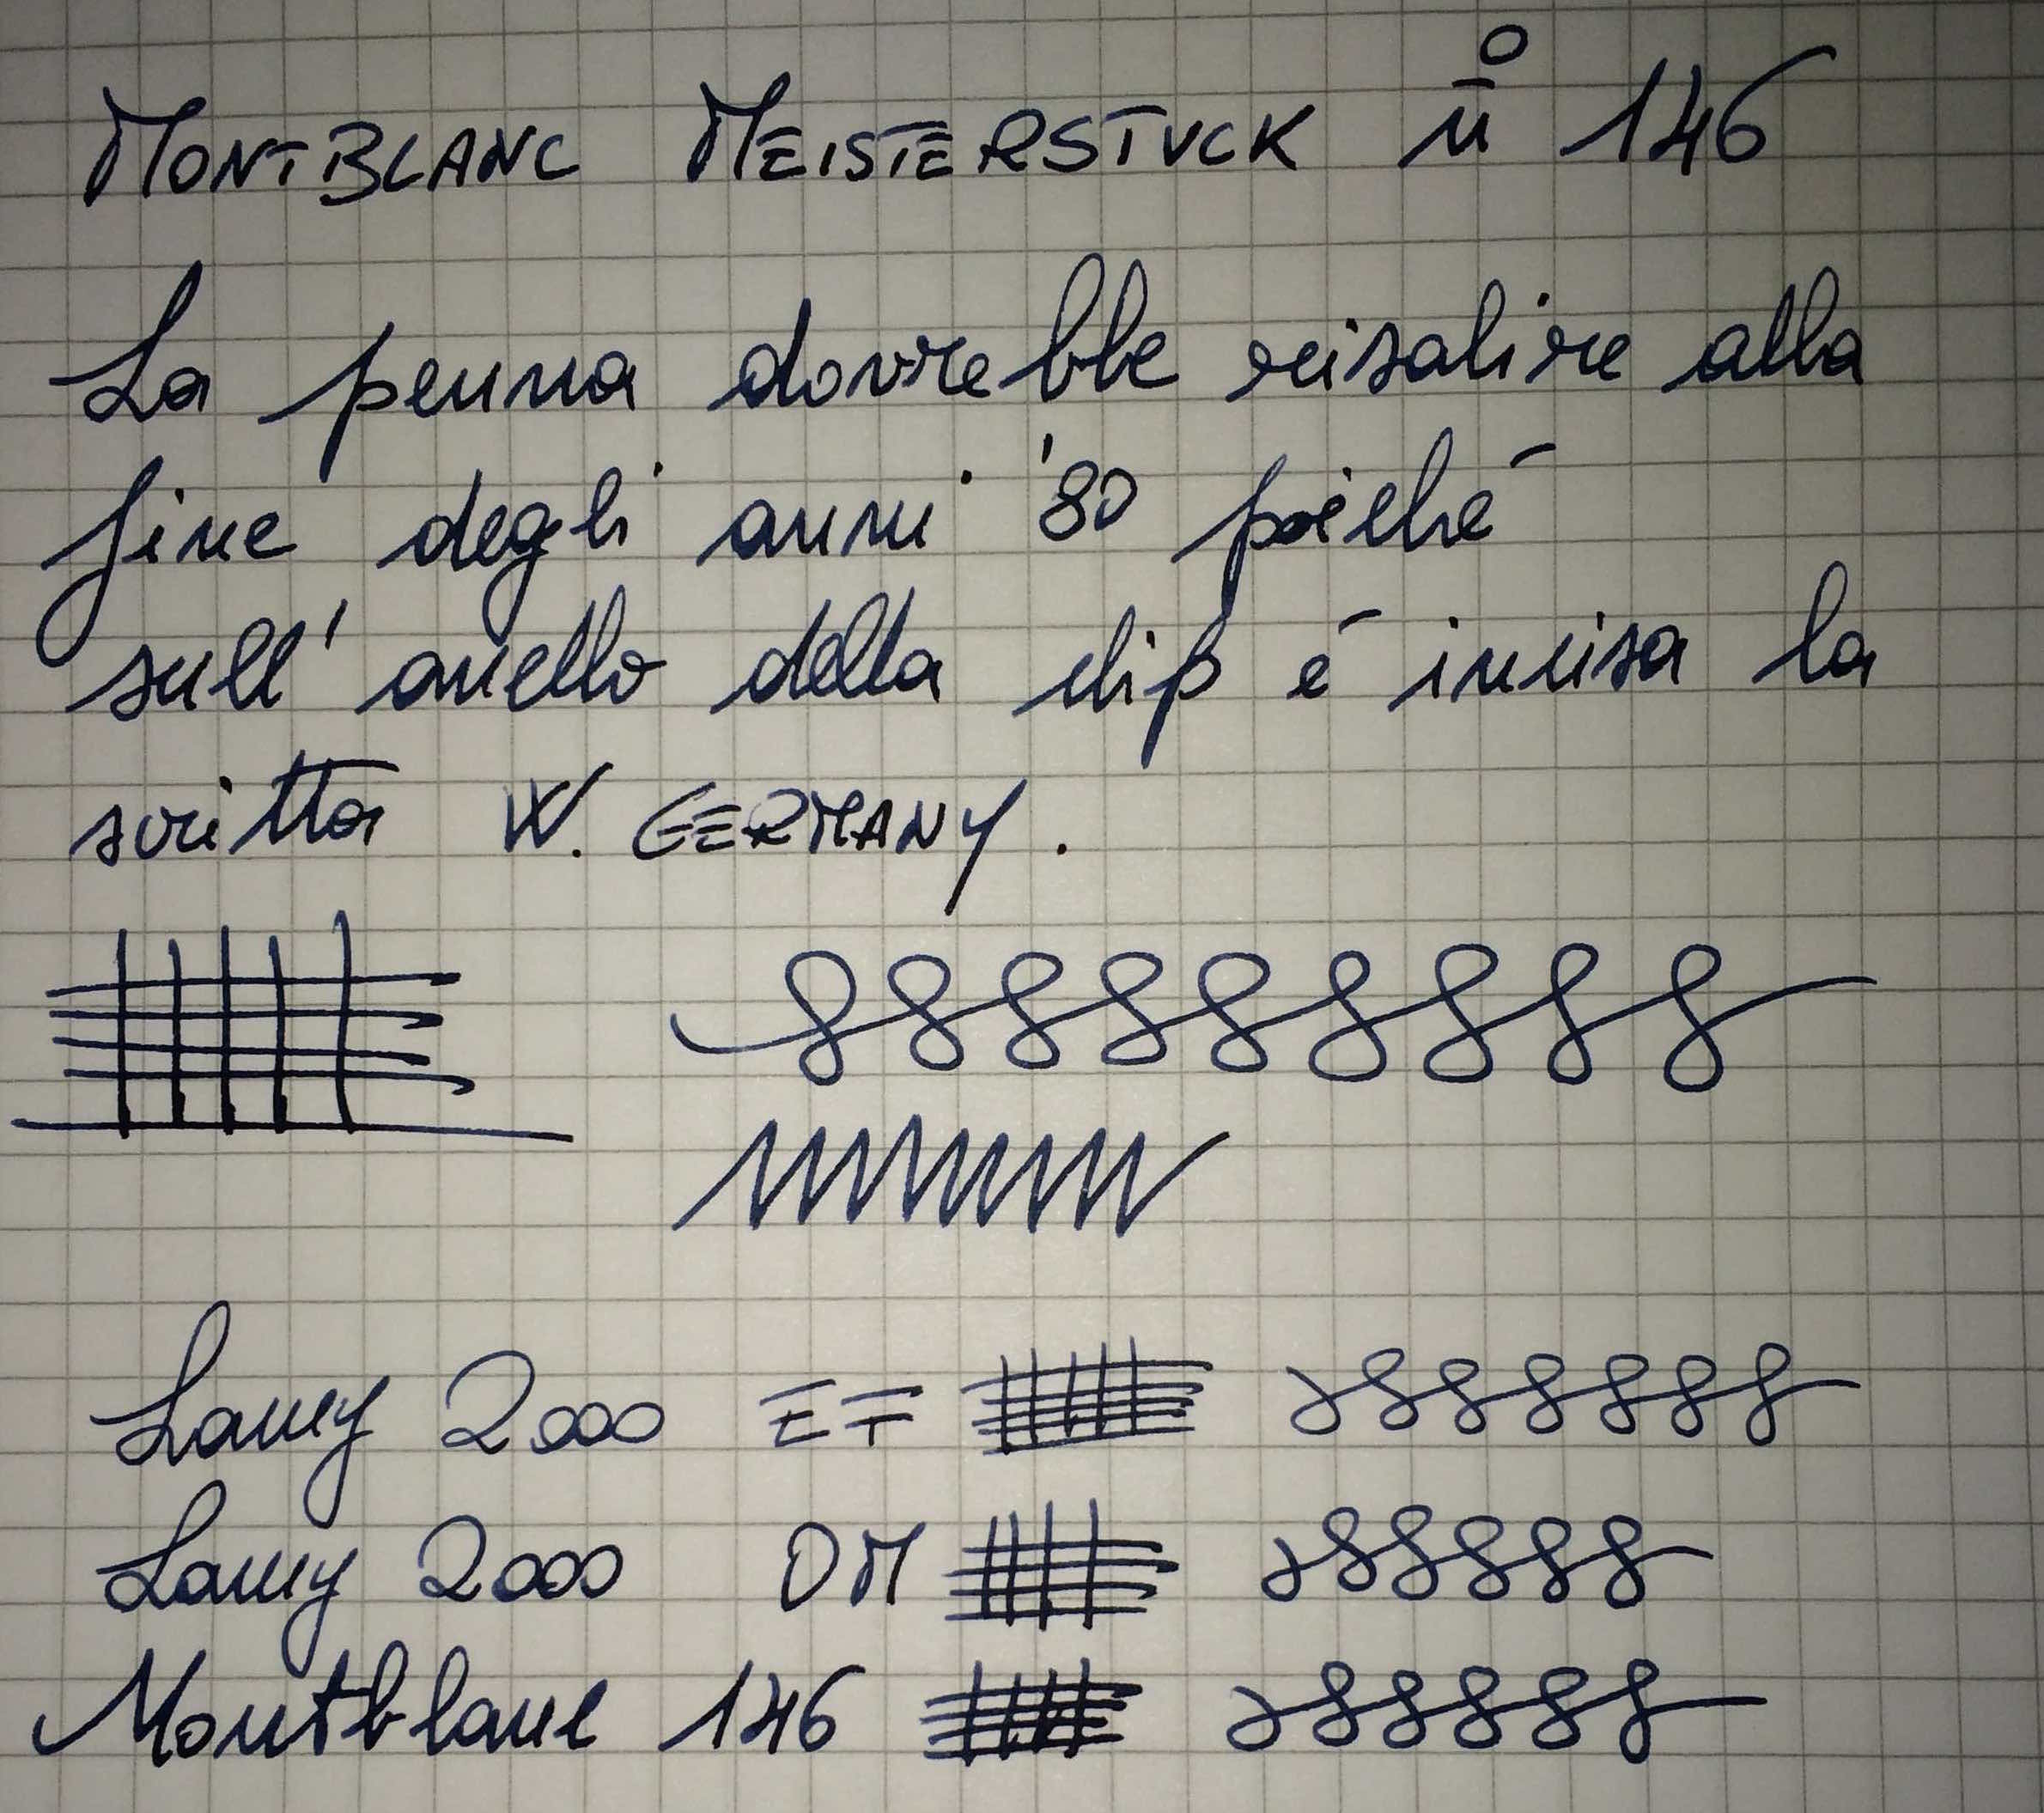 MONTBLANC MEISTERSTUCK n° 146
La penna dovrebbe risalire alla
fine degli anni '80 poiché
sull'anello della clip é incisa la
scritta W. GERMANY.
Lamy 2000 EF
Lamy 2000 OM
Montblanc 146